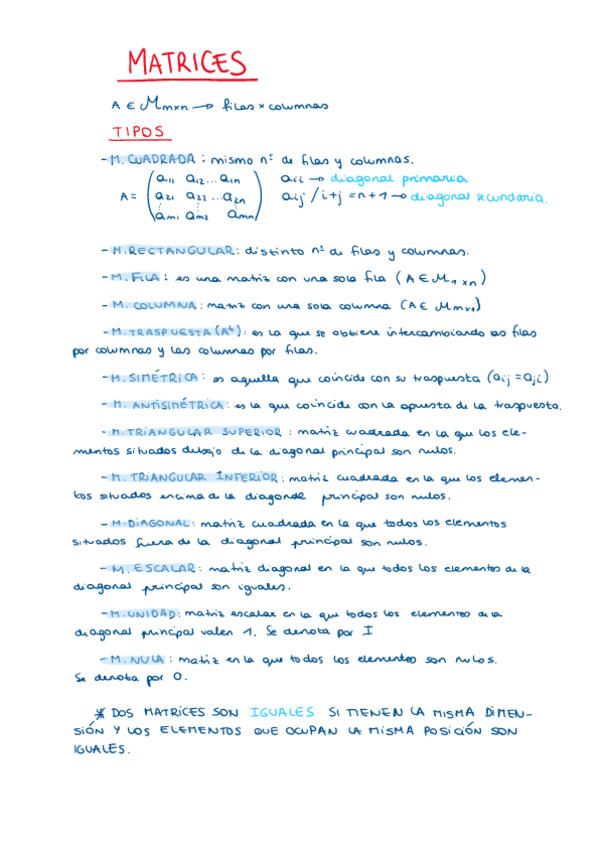 MATRICES
A ∈ Mmxn → filas x columnas
TIPOS
- M. CUADRADA: mismo nº de filas y columnas.
a11 a12 ... a1n    aii → diagonal primaria
A = a21 a22 ... a2n    aij / i+j = n+1 → diagonal secundaria.
am1 am2 amn
- M. RECTANGULAR: distinto nº de filas y columnas.
- M. FILA: es una matriz con una sola fila (A ∈ M1xn)
- M. COLUMNA: matriz con una sola columna (A ∈ Mmx1)
- M. TRASPUESTA (Aᵗ): es la que se obtiene intercambiando las filas
por columnas y las columnas por filas.
- M. SIMÉTRICA: es aquella que coincide con su traspuesta (aij = aji)
- M. ANTISIMÉTRICA: es la que coincide con la opuesta de la traspuesta.
- M. TRIANGULAR SUPERIOR: matriz cuadrada en la que los ele-
mentos situados debajo de la diagonal principal son nulos.
- M. TRIANGULAR INFERIOR: matriz cuadrada en la que los elemen-
tos situados encima de la diagonal principal son nulos.
- M. DIAGONAL: matriz cuadrada en la que todos los elementos
situados fuera de la diagonal principal son nulos.
- M. ESCALAR: matriz diagonal en la que todos los elementos de la
diagonal principal son iguales.
- M. UNIDAD: matriz escalar en la que todos los elementos de la
diagonal principal valen 1. Se denota por I
- M. NULA: matriz en la que todos los elementos son nulos.
Se denota por 0.
* DOS MATRICES SON IGUALES SI TIENEN LA MISMA DIMEN-
SIÓN Y LOS ELEMENTOS QUE OCUPAN LA MISMA POSICIÓN SON
IGUALES.